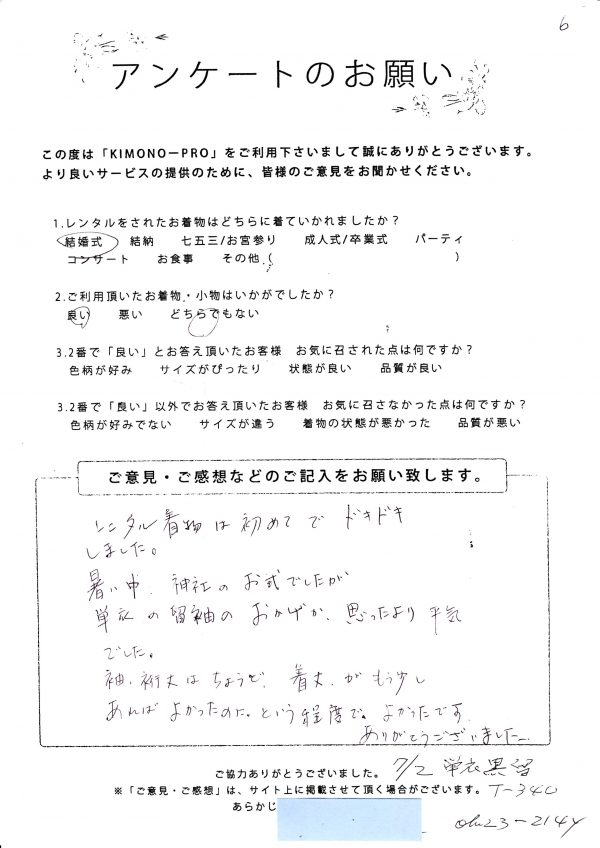 6
アンケートのお願い
この度は「KIMONOーPRO」をご利用下さいまして誠にありがとうございます。
より良いサービスの提供のために、皆様のご意見をお聞かせください。
1.レンタルをされたお着物はどちらに着ていかれましたか？
結婚式 結納 七五三/お宮参り 成人式/卒業式 パーティ
コンサート お食事 その他 ( )
2.ご利用頂いたお着物・小物はいかがでしたか？
良い 悪い どちらでもない
3.2番で「良い」とお答え頂いたお客様 お気に召された点は何ですか？
色柄が好み サイズがぴったり 状態が良い 品質が良い
3.2番で「良い」以外でお答え頂いたお客様 お気に召さなかった点は何ですか？
色柄が好みでない サイズが違う 着物の状態が悪かった 品質が悪い
ご意見・ご感想などのご記入をお願い致します。
レンタル着物は初めてでドキドキ
しました。
暑い中、神社のお式でしたが
単衣の留袖のおかげか、思ったより平気
でした。
袖、裄丈はちょうど、着丈がもう少し
あればよかったのに。という程度で。よかったです。
ありがとうございました
ご協力ありがとうございました。 7/2 単衣黒留
※「ご意見・ご感想」は、サイト上に掲載させて頂く場合がございます。 T-340
あらかじ